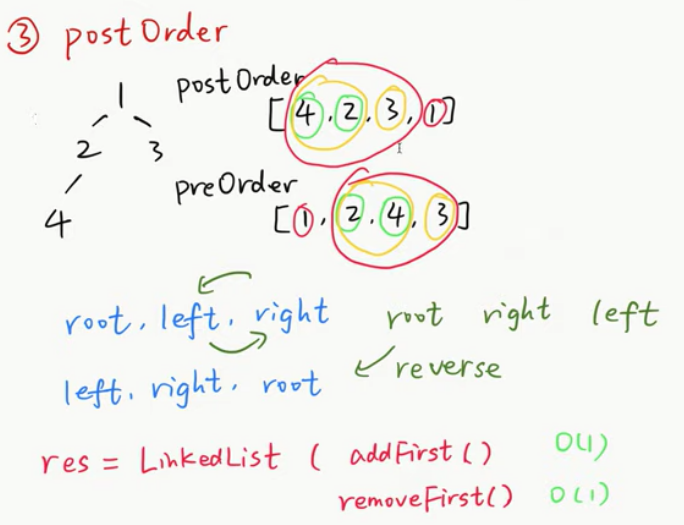 ③ postOrder
1
2 3
4
postOrder
[4, 2, 3, 1]
preOrder
[1, 2, 4, 3]
root, left, right
root right left
left, right, root
reverse
res = LinkedList ( addFirst() O(1)
removeFirst() O(1)